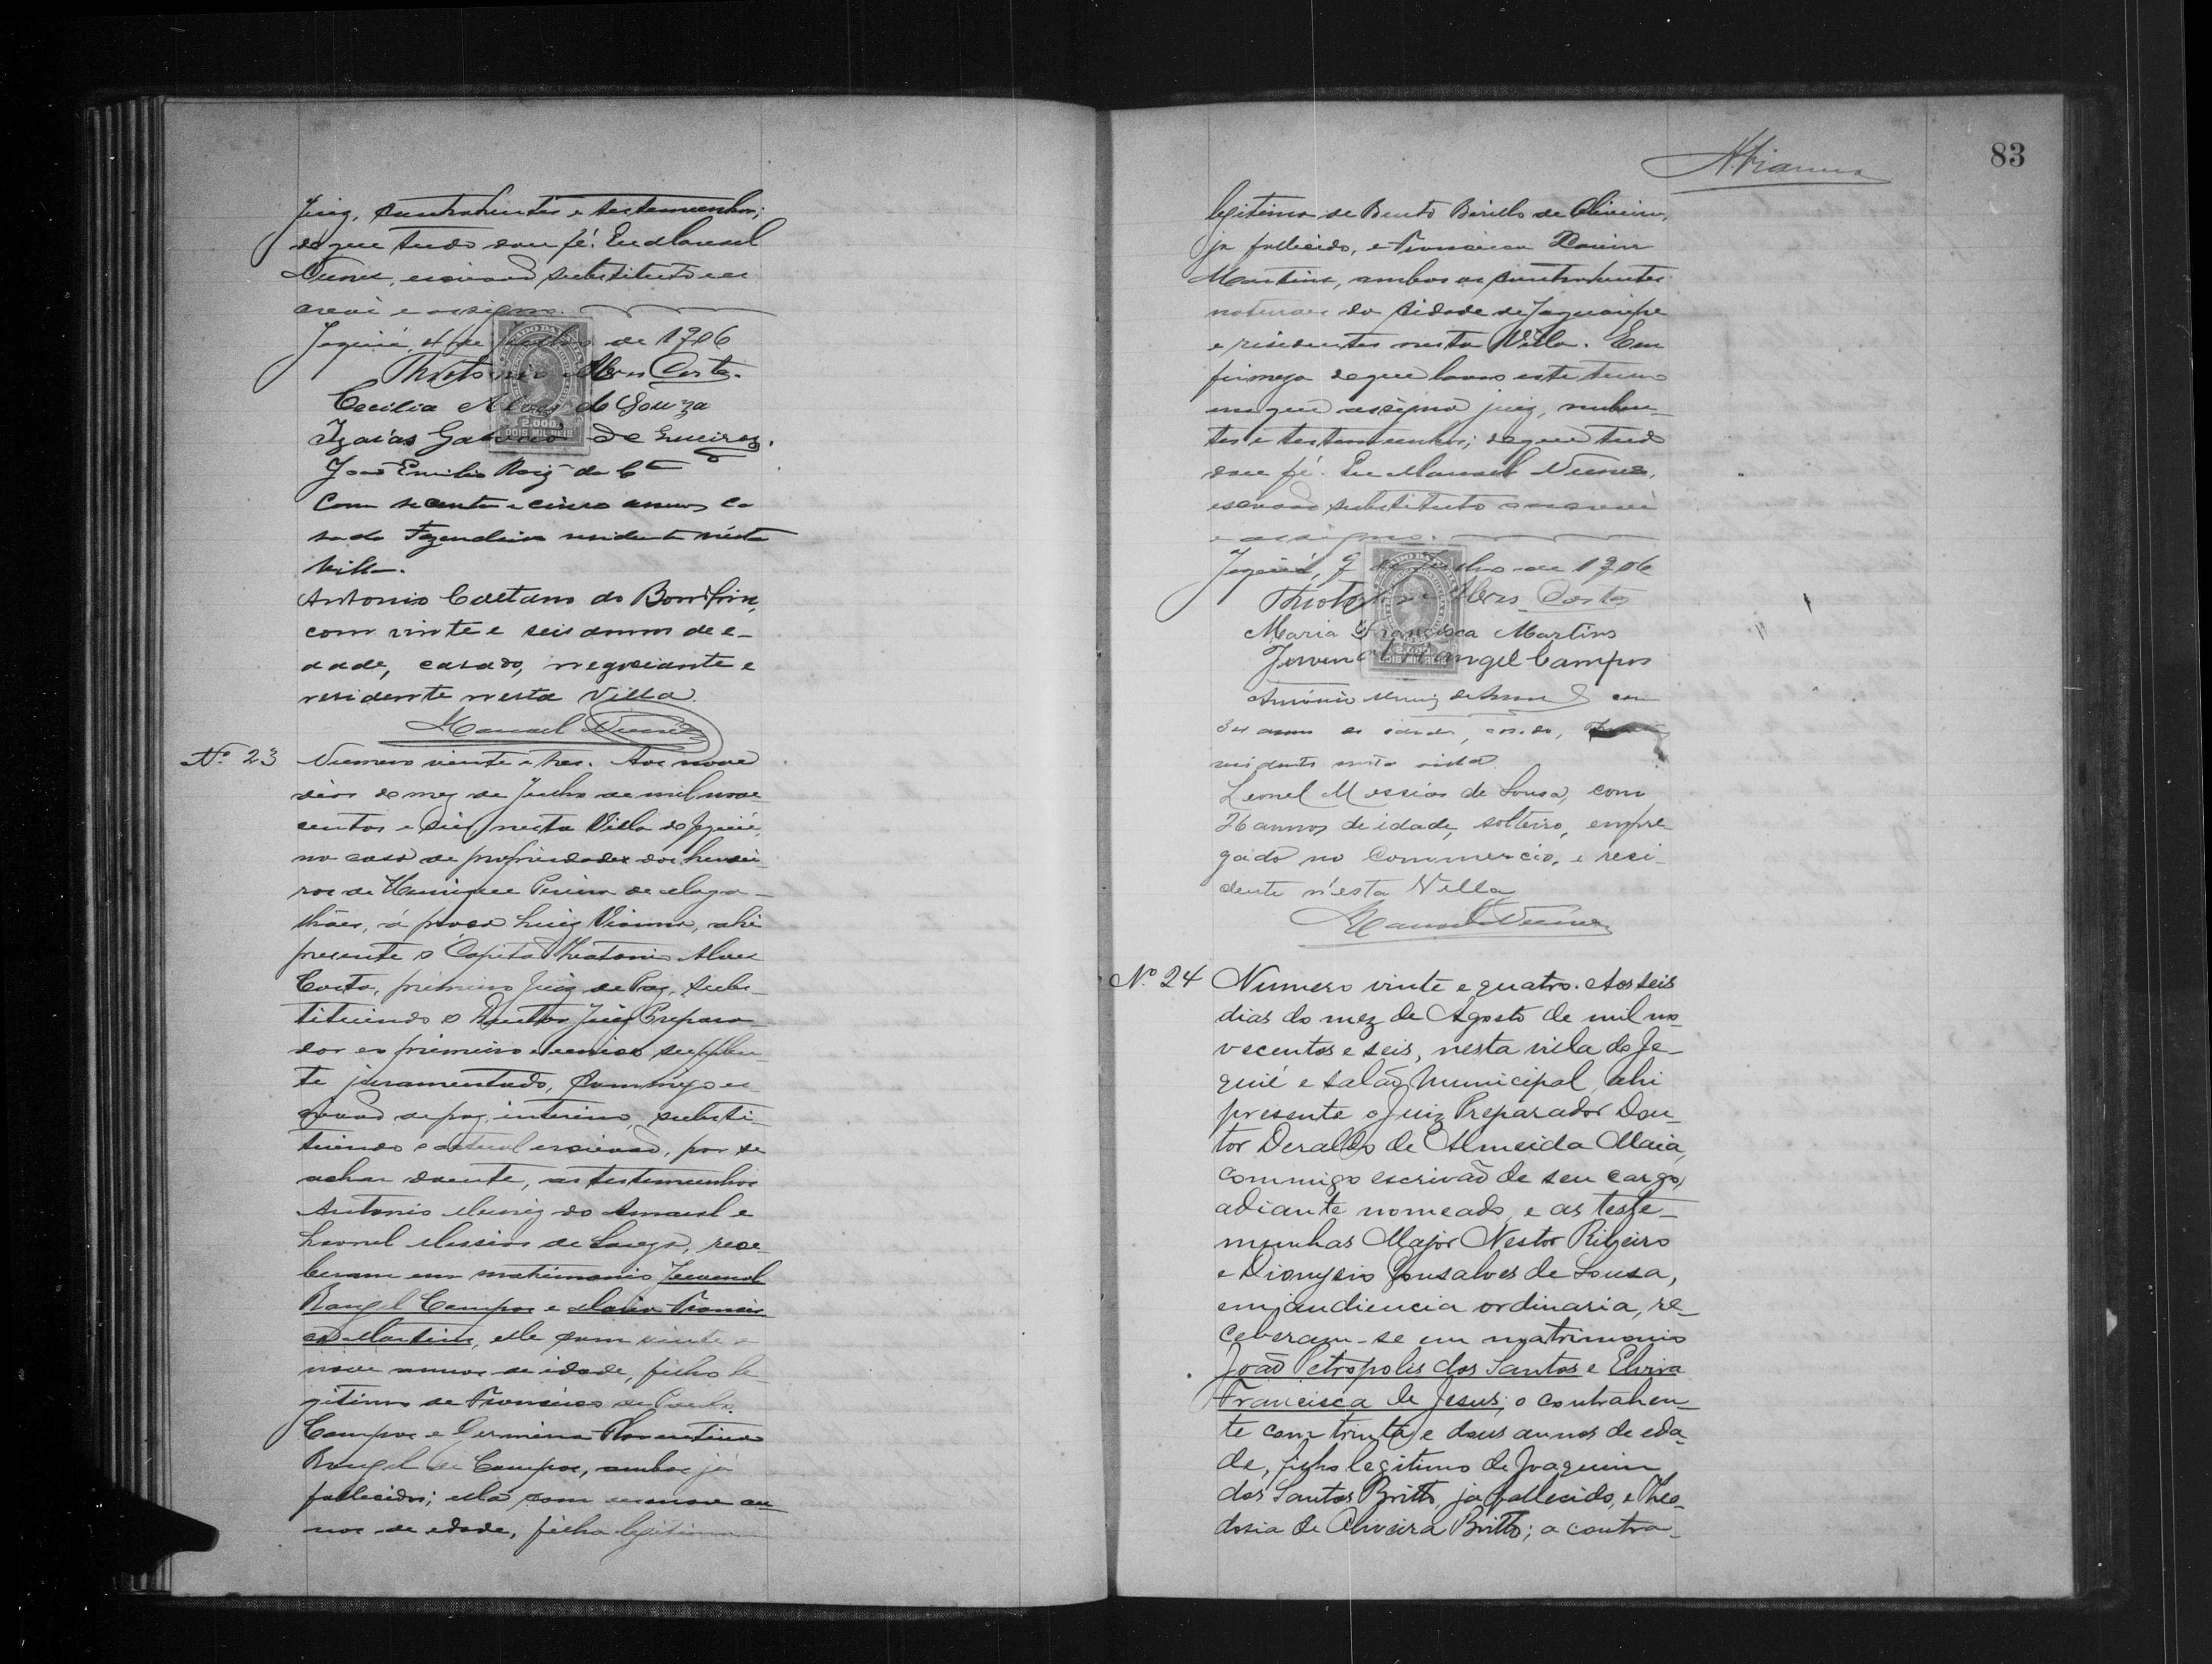 Juiz, contrahentes e testemunhas;
do que tudo dou fé. Eu Manuel
Nunes, escrivão substituto es
crevi e assigno.
Jequié, 4 de Julho de 1906
Theotonio Alves Costa.
Cecilia Alves de Souza
Izaias Galvão de Queiroz.
João Emilio Roiz da Cta
com secenta e cinco annos ca
sado Fazendeiro residente nésta
Villa.
Antonio Caetano do Bomfim,
com vinte e seis annos de e-
dade, casado, negociante e
residente nesta Villa.
Manuel Nunes
Nº 23 Numero vinte e tres. Aos nove
dias do mez de Julho de mil nove
centos e seis, nesta Villa de Jequié,
na casa de propriedade dos herdei
ros de Henrique Pereira de Maga-
lhães, á praça Luiz Vianna, ahi
presente o Capitão Theotonio Alves
Costa, primeiro Juiz de Paz, subs-
tituindo o Doutor Juiz Prepara-
dor e o primeiro e unico supplen
te juramentado, commigo es
crivão de paz interino, substi-
tuindo o actual escrivão, por se
achar doente, as testemunhas
Antonio Muniz do Amaral e
Leonel Messias de Souza, rece
beram em matrimonio Juvenal
Rangel Campos e Maria Francis
ca Martins, elle com vinte e
nove annos de idade, filho le
gitimo de Francisco de Paula
Campos e Germina Florentina
Rangel de Campos, ambos já
fallecidos; ella com an
nos de edade, filha legitima
83
legitima de Bento de Oliveira,
ja fallecido, e Francisca
Martins, ambos os contrahentes
naturaes da Cidade de Jaguaripe
e residentes nesta Villa. Em
firmeza do que lavro este termo
em que assigna juiz, nuben-
tes e testemunhas; do que tudo
dou fé. Eu Manuel Nunes,
escrivão substituto o escrevi
e assigno.
Jequié, 9 de Julho de 1906
Theotonio Alves Costa
Maria Francisca Martins
Juvenal Rangel Campos
Antonio Muniz do Amaral com
annos de idade, casado,
residente nesta villa
Leonel Messias de Sousa, com
26 annos de idade, solteiro, empre-
gado no Commercio, e resi-
dente n'esta Villa
Manuel Nunes
Nº 24 Numero vinte e quatro. Aos seis
dias do mez de Agosto de mil no-
vecentos e seis, nesta villa de Je-
quié e salão Municipal, ahi
presente o Juiz Preparador Dou-
tor Deraldo de Almeida Maia,
commigo escrivão de seu cargo,
adiante nomeado, e as teste-
munhas Major Nestor Ribeiro
e Dionysio Gonsalves de Sousa,
em audiencia ordinaria, re-
ceberam-se em matrimonio
João Petropolis dos Santos e Elvira
Francisca de Jesus; o contrahen-
te com trinta e dous annos de eda-
de, filho legitimo de Joaquim
dos Santos Britto, já fallecido, e Theo-
dosia de Oliveira Britto; a contra-